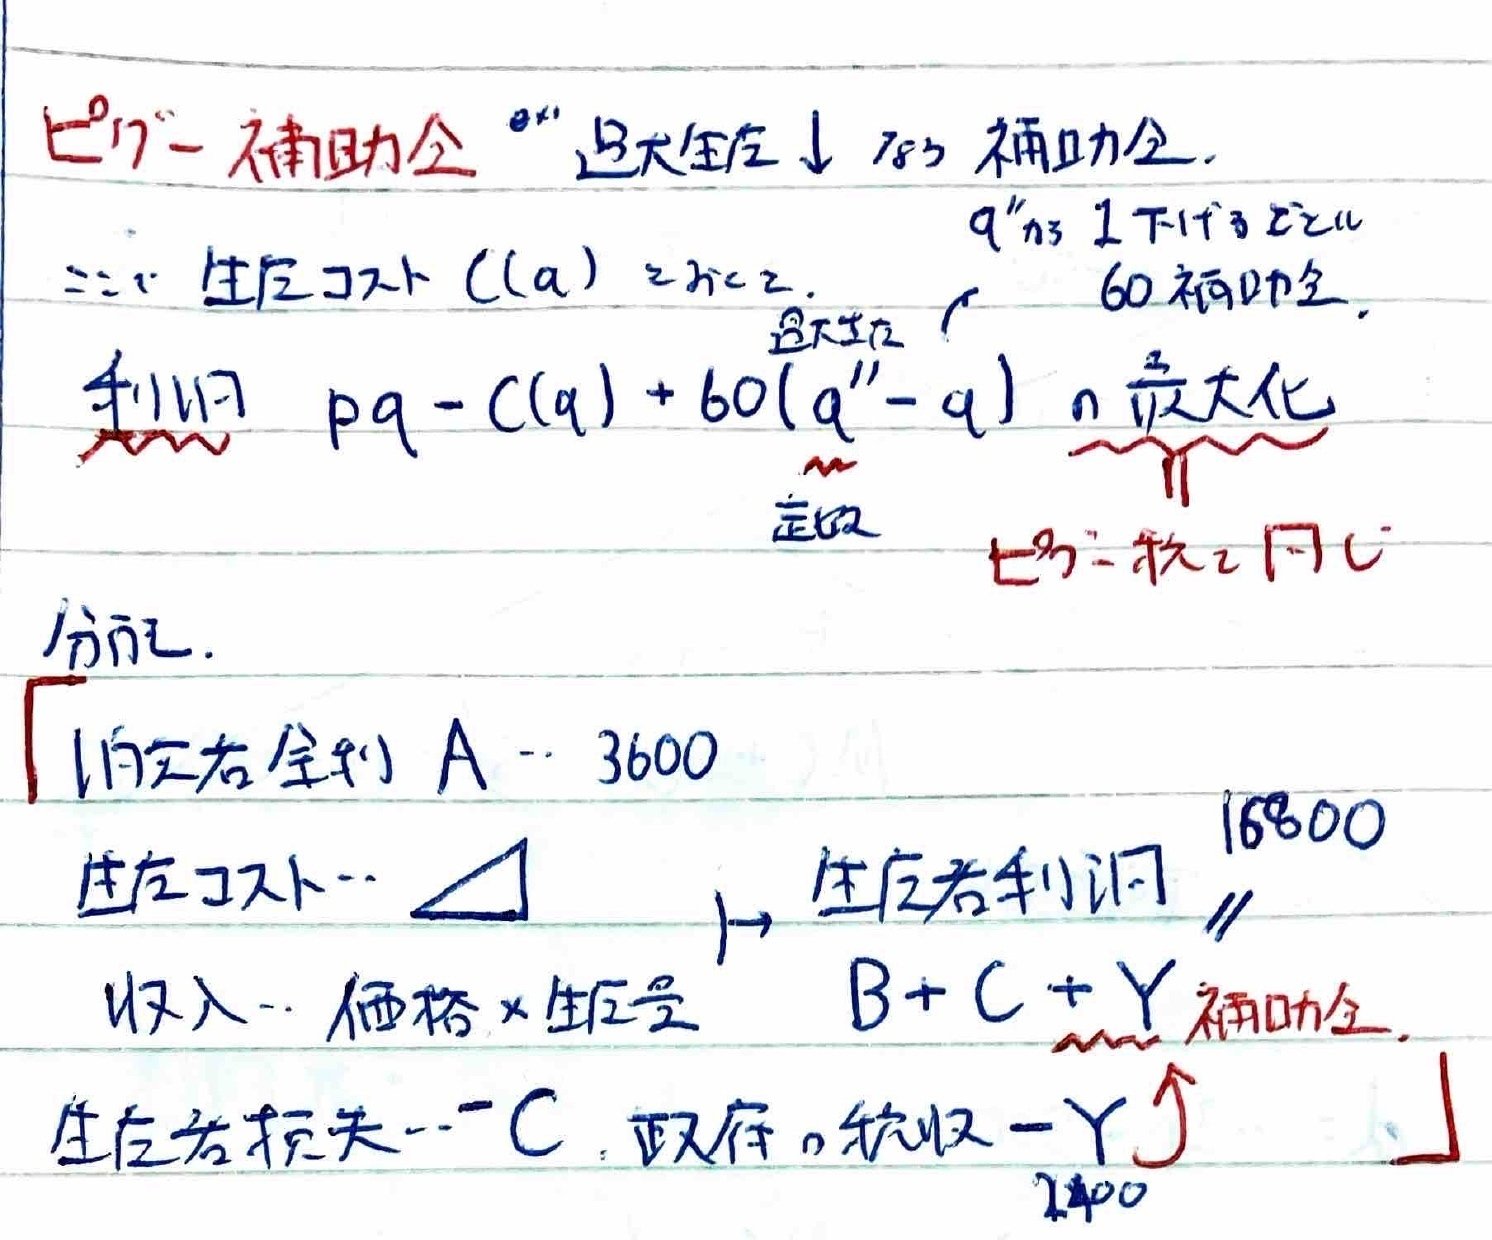 ピグー補助金 ex" 過大生産↓ なら 補助金.
q"から 1下げるごとに
60補助金.
ここで 生産コスト C(q) とおくと.
過大生産
利潤 pq - C(q) + 60(q" - q) の最大化
定数
ピグー税と同じ
分配.
消費者余剰 A … 3600
16800
生産コスト… ↦ 生産者利潤
収入… 価格×生産量 B + C + Y 補助金.
生産者損失… -C. 政府の税収 -Y
2400